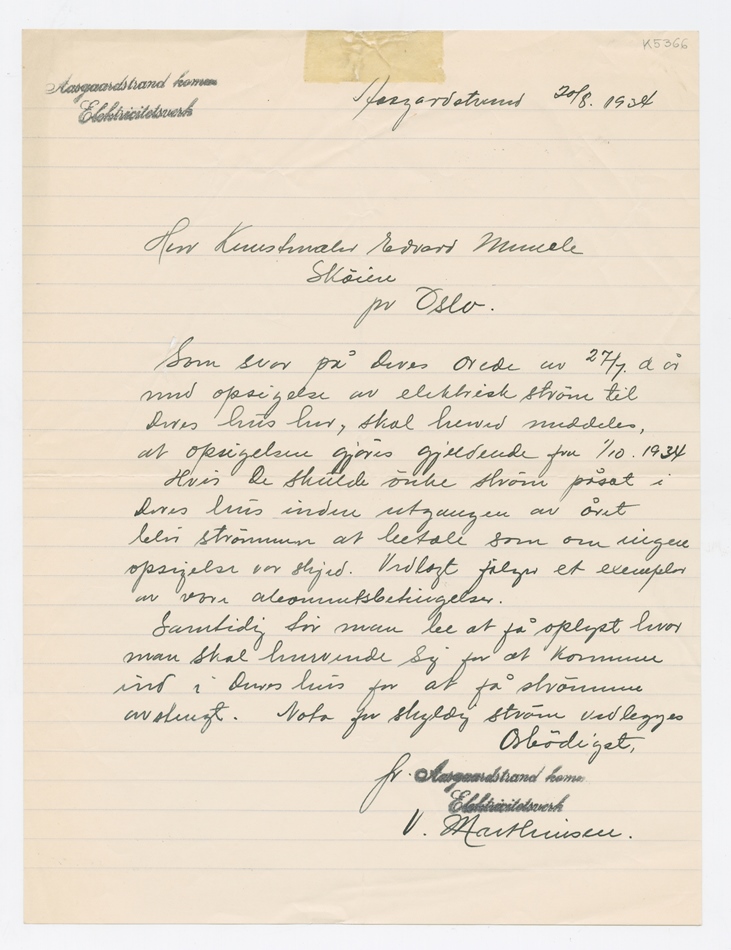 K5366
Aasgaardstrand komm
Elektricitetsverk
Aasgardstrand 20/8. 1934
Herr Kunstmaler Edvard Munch
Skøien
pr Oslo.
Som svar på Deres ærede av 27/7. d år
med opsigelse av elektrisk strøm til
Deres hus her, skal herved meddeles,
at opsigelsen gjøres gjeldende fra 1/10. 1934
Hvis De skulde önke ström påsat i
Deres hus inden utgangen av året
blir strömmen at betale som om ingen
opsigelse var skjed. Vedlagt følger et exemplar
av vore abonnentsbetingelser.
Samtidig tør man be at få oplyst hvor
man skal henvende sig for at komme
ind i Deres hus for at få strömmen
avstengt. Nota for skyldig ström vedlegges
Ærbödigst,
fr. Aasgaardstrand komm
Elektricitetsverk
V. Marthinsen.